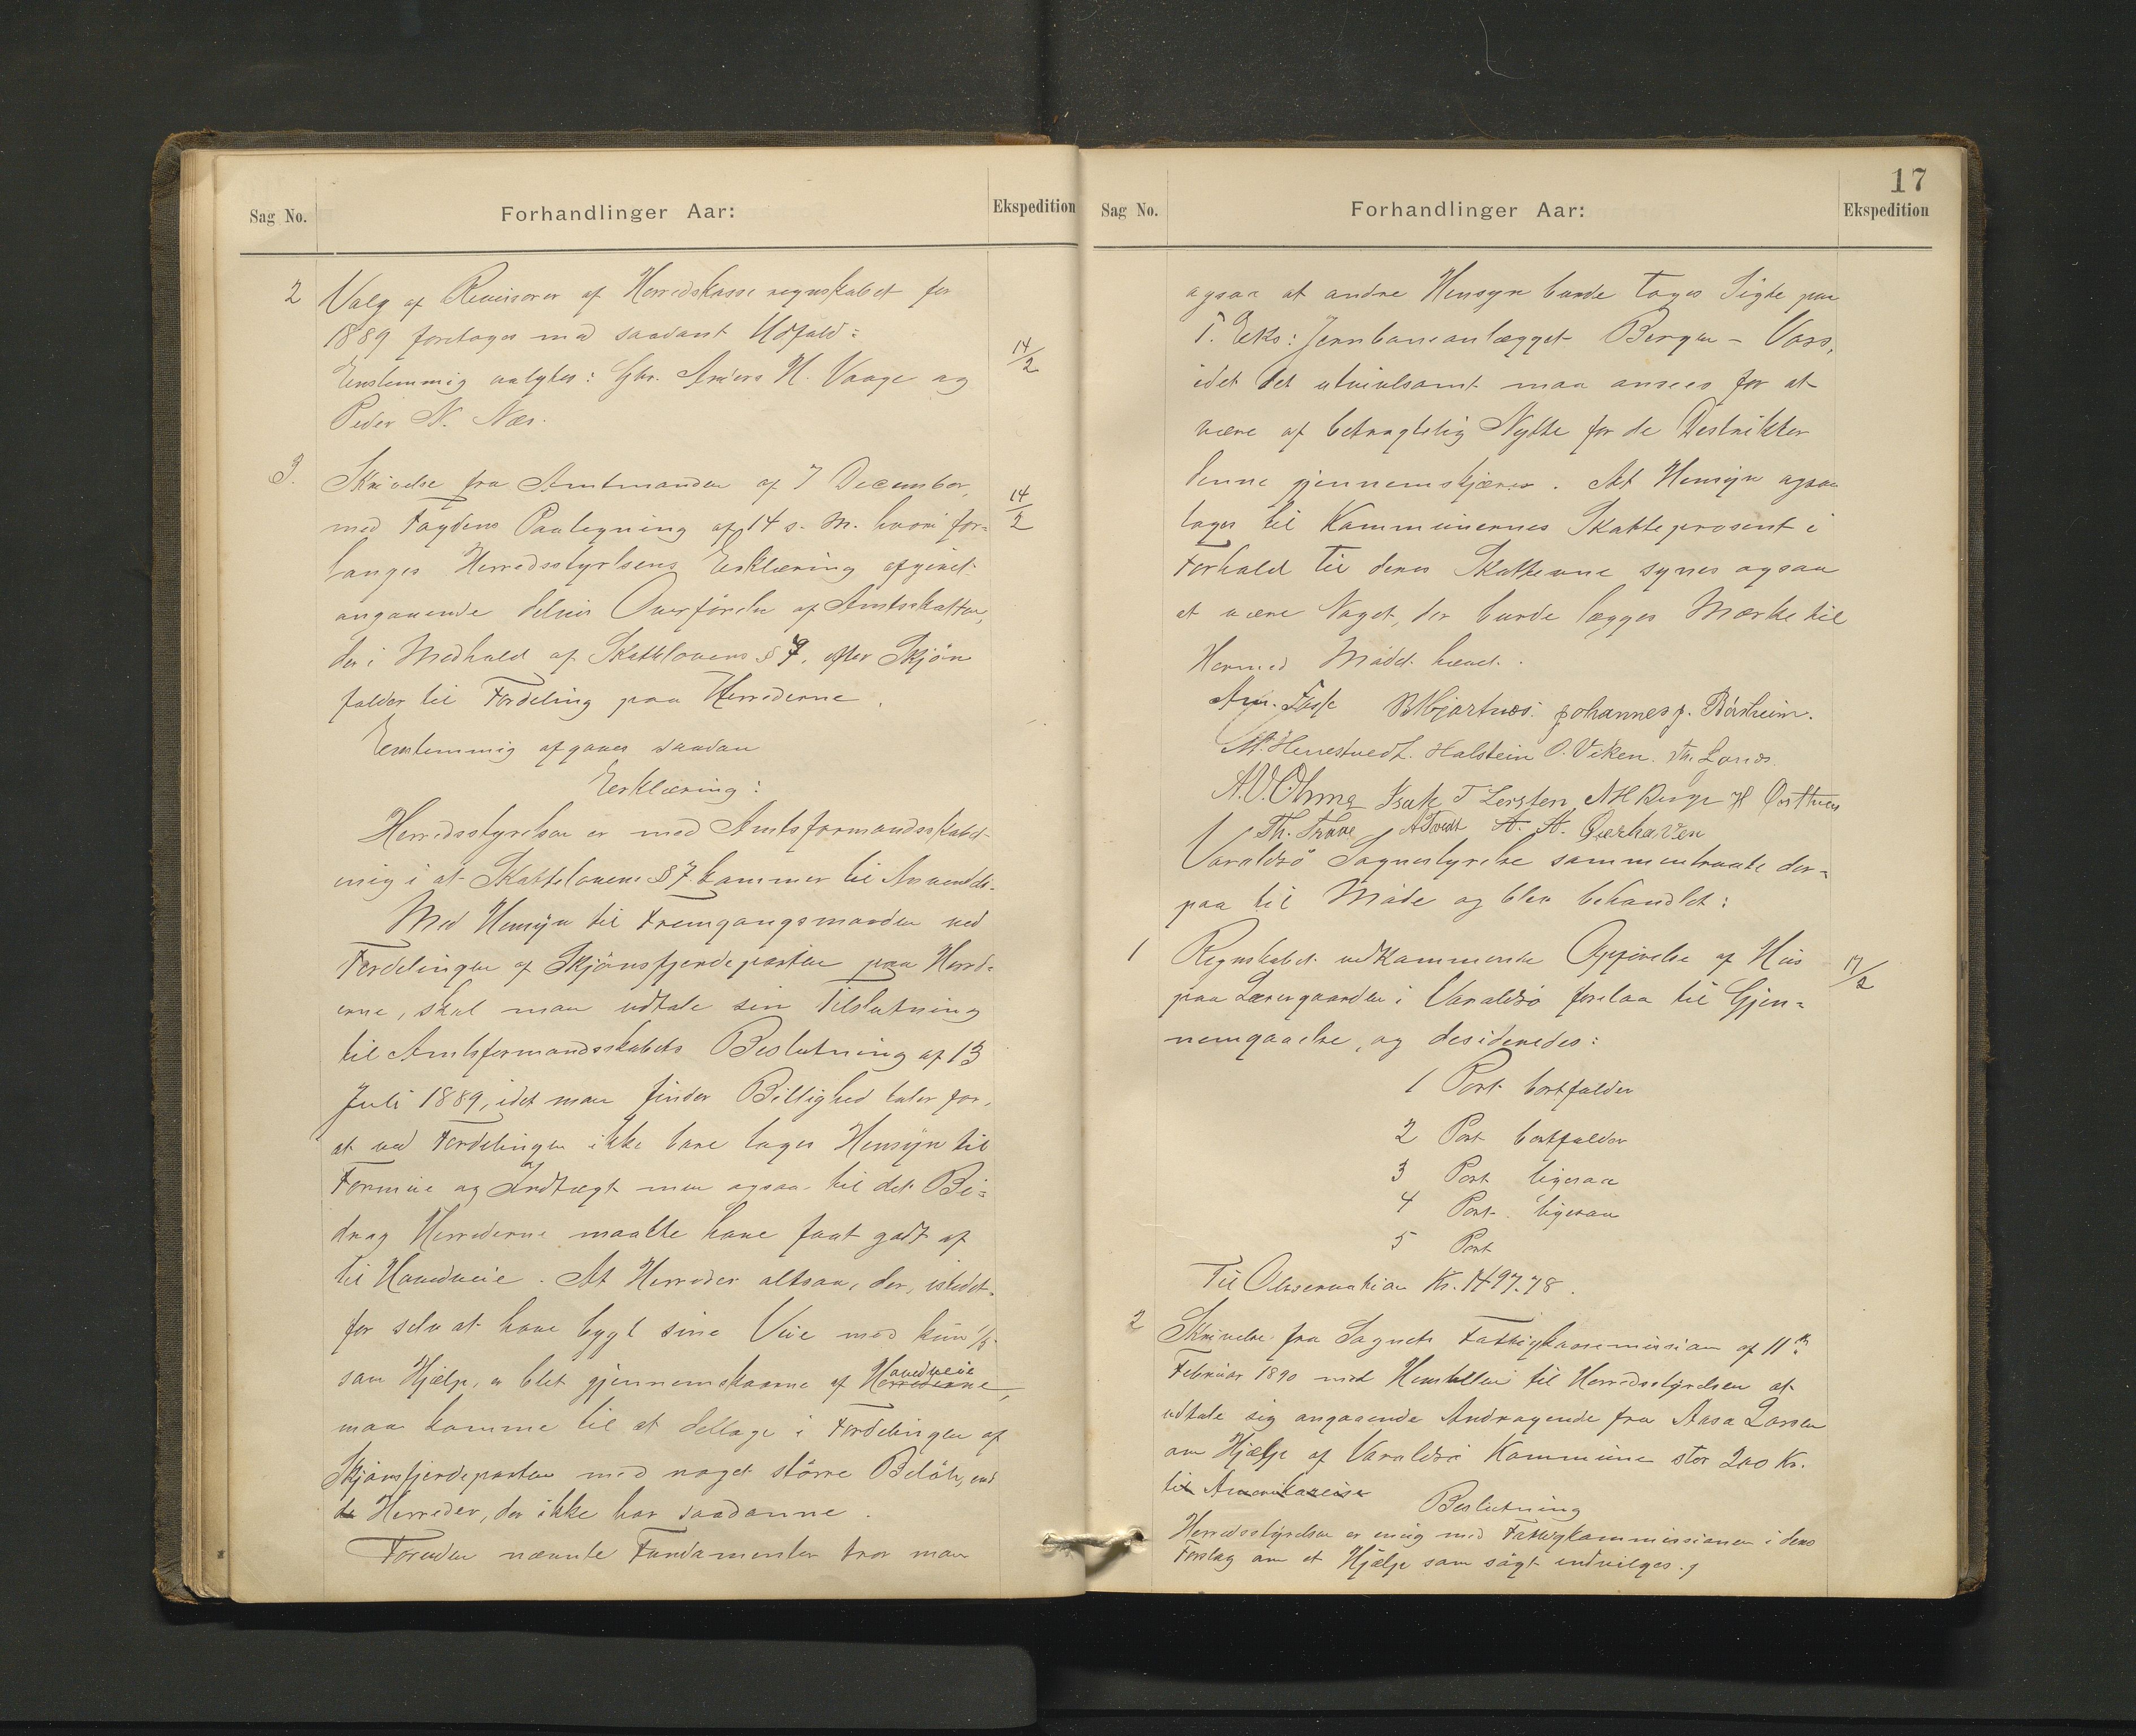 Sag No.
Forhandlinger Aar:
Ekspedition
2 Valg af Revisorer af Herredskasseregnskabet for
1889 foretoges med saadant Udfald:
14/2
Enstemmig valgtes: Gbr. Anders H. Vaage og
Peder N. Næs.
3. Skrivelse fra Amtmanden af 7 December,
med Fogdens Paategning af 14 s. M. hvori for-
14/2
langes Herredsstyrelsens Erklæring afgivet
angaaende delvis Overførelse af Amtsskatten,
der i Medhold af Skattelovens § 7, efter Skjøn
falder til Fordeling paa Herrederne.
Enstemmig afgaves saadan
Erklæring:
Herredsstyrelsen er med Amtsformandsskabet
enig i at Skattelovens § 7 kommer til Anvendels.
Med Hensyn til Fremgangsmaaden ved
Fordelingen af Skjønsfjerdeparten paa Herred-
erne, skal man udtale sin Tilslutning
til Amtsformandsskabets Beslutning af 13
Juli 1889, idet man finder Billighed taler for,
at ved Fordelingen ikke bare tages Hensyn til
Formue og Indtægt men ogsaa til det Bi-
drag Herrederne maatte have faat godt af
til Hovedveie. At Herreder altsaa, der, istedet-
for selv at have bygt sine Veie med kun 1/5
som Hjælp, er blet gjennemskaarne af Herrederne Hovedveie,
maa komme til at deltage i Fordelingen af
Skjønsfjerdeparten med noget større Beløb, end
de Herreder, der ikke har saadanne.
Foruden nævnte Fundamenter tror man
17
Sag No.
Forhandlinger Aar:
Ekspedition
ogsaa at andre Hensyn burde tages Sigte paa
T. Eks: Jernbaneanlægget Bergen - Voss,
idet det utvivlsomt maa ansees for at
være af betragtelig Nytte for de Distrikter
denne gjennemskjærer. At Hensyn ogsaa
tages til Kommunernes Skatteprosent i
Forhold til deres Skatteevne synes ogsaa
at være Noget, der burde lægges Mærke til
Hermed Mødet hævet.
Am. Fasse B Mjartnes. Johannes J. Børsheim.
M. Henestvedt. Halstein O. Viken. Th. Lonos.
A. V. Ohma Isak T Lersten, N H Berge H Oosthus
Th. Traae, A Tvedt A. A. Overhaven
Varaldsø Sognestyrelse sammentraadte der-
paa til Møde og blev behandlet:
1 Regnskabet vedkommende Opførelse af Hus
17/2
paa Lærergaarden i Varaldsø forelaa til Gjen-
nemgaaelse, og desideredes:
1 Post bortfalder
2 Post bortfalder
3 Post ligesaa
4 Post ligesaa
5 Post
Til Observation Kr. 1497.78.
2 Skrivelse fra Sognets Fattigkommission af 11te
Februar 1890 med Henstillen til Herredsstyrelsen at
udtale sig angaaende Andragende fra Aasa Larsen
om Hjælp af Varaldsø Kommune stor 200 Kr.
til Amerikareise
Beslutning
Herredsstyrelsen er enig med Fattigkommissionen i dens
Forslag om at Hjælp som søgt indvilges.